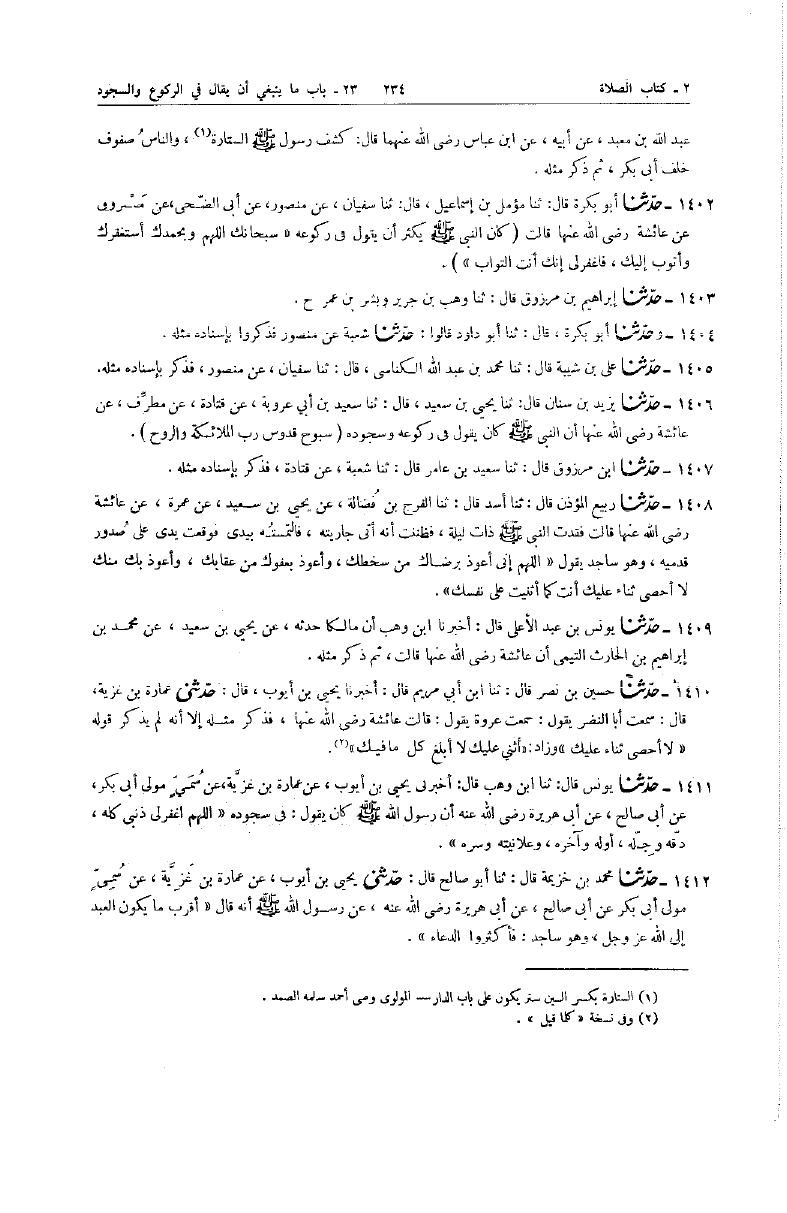 ٢ ـ كتاب الصلاة ٢٣٤ ٢٣ ـ باب ما ينبغي أن يقال في الركوع والسجود
عبد الله بن معبد ، عن أبيه ، عن ابن عباس رضى الله عنهما قال: كشف رسول ﷺ الستارة(١) ، والناس صفوف
خلف أبى بكر ، ثم ذكر مثله .
١٤٠٢ ـ حدّثنا أبو بكرة قال: ثنا مؤمل بن إسماعيل ، قال: ثنا سفيان ، عن منصور، عن أبى الضّحى،عن مَسْروق
عن عائشة رضى الله عنها قالت ( كان النبى ﷺ يكثر أن يقول فى ركوعه « سبحانك اللهم وبحمدك أستغفرك
وأتوب إليك ، فاغفرلى إنك أنت التواب » ) .
١٤٠٣ ـ حدّثنا إبراهيم بن مرزوق قال : ثنا وهب بن جرير وبشر بن عمر ح .
١٤٠٤ ـ وحدّثنا أبو بكرة ، قال : ثنا أبو داود قالوا : حدّثنا شعبة عن منصور فذكروا بإسناده مثله .
١٤٠٥ ـ حدّثنا على بن شيبة قال : ثنا محمد بن عبد الله الكناسى ، قال : ثنا سفيان ، عن منصور ، فذكر بإسناده مثله.
١٤٠٦ ـ حدّثنا يزيد بن سنان قال: ثنا يحيى بن سعيد ، قال : ثنا سعيد بن أبي عروبة ، عن قتادة ، عن مطرِّف ، عن
عائشة رضى الله عنها أن النبى ﷺ كان يقول فى ركوعه وسجوده ( سبوح قدوس رب الملائكة والروح ) .
١٤٠٧ ـ حدّثنا ابن مرزوق قال : ثنا سعيد بن عامر قال : ثنا شعبة ، عن قتادة ، فذكر بإسناده مثله .
١٤٠٨ ـ حدّثنا ربيع المؤذن قال : ثنا أسد قال : ثنا الفرج بن فُضالة ، عن يحيى بن سعيد ، عن عمرة ، عن عائشة
رضى الله عنها قالت فقدت النبى ﷺ ذات ليلة ، فظننت أنه أتى جاريته ، فالتمسته بيدى فوقعت يدى على صُدور
قدميه ، وهو ساجد يقول « اللهم إنى أعوذ برضاك من سخطك ، وأعوذ بعفوك من عقابك ، وأعوذ بك منك
لا أحصى ثناء عليك أنت كما أثنيت على نفسك».
١٤٠٩ ـ حدّثنا يونس بن عبد الأعلى قال : أخبرنا ابن وهب أن مالكا حدثه ، عن يحيى بن سعيد ، عن محمد بن
إبراهيم بن الحارث التيمى أن عائشة رضى الله عنها قالت ، ثم ذكر مثله .
١٤١٠ ـ حدّثنا حسين بن نصر قال : ثنا ابن أبي مريم قال : أخبرنا يحيى بن أيوب ، قال : حدّثنى عمارة بن غزية،
قال : سمعت أبا النضر يقول : سمعت عروة يقول : قالت عائشة رضى الله عنها ، فذكر مثله إلا أنه لم يذكر قوله
« لا أحصى ثناء عليك »وزاد:«أثنى عليك لا أبلغ كل مافيك»(٢).
١٤١١ ـ حدّثنا يونس قال: ثنا ابن وهب قال: أخبرنى يحيى بن أيوب ، عن عمارة بن غزيَّة،عن سُمَىّ مولى أبى بكر،
عن أبى صالح ، عن أبى هريرة رضى الله عنه أن رسول الله ﷺ كان يقول : فى سجوده « اللهم اغفرلى ذنبى كله ،
دقه وجلّه ، أوله وآخره ، وعلانيته وسره » .
١٤١٢ ـ حدّثنا محمد بن خزيمة قال : ثنا أبو صالح قال : حدّثنى يحيى بن أيوب ، عن عمارة بن غَزيَّة ، عن سُمىّ
مولى أبى بكر عن أبى صالح ، عن أبى هريرة رضى الله عنه ، عن رسول الله ﷺ أنه قال « أقرب ما يكون العبد
إلى الله عز وجل ، وهو ساجد : فأكثروا الدعاء » .
(١) الستارة بكسر السين ستر يكون على باب الدار — المولوى وصى أحمد سلمه الصمد .
(٢) وفى نسخة « كلما قيل » .